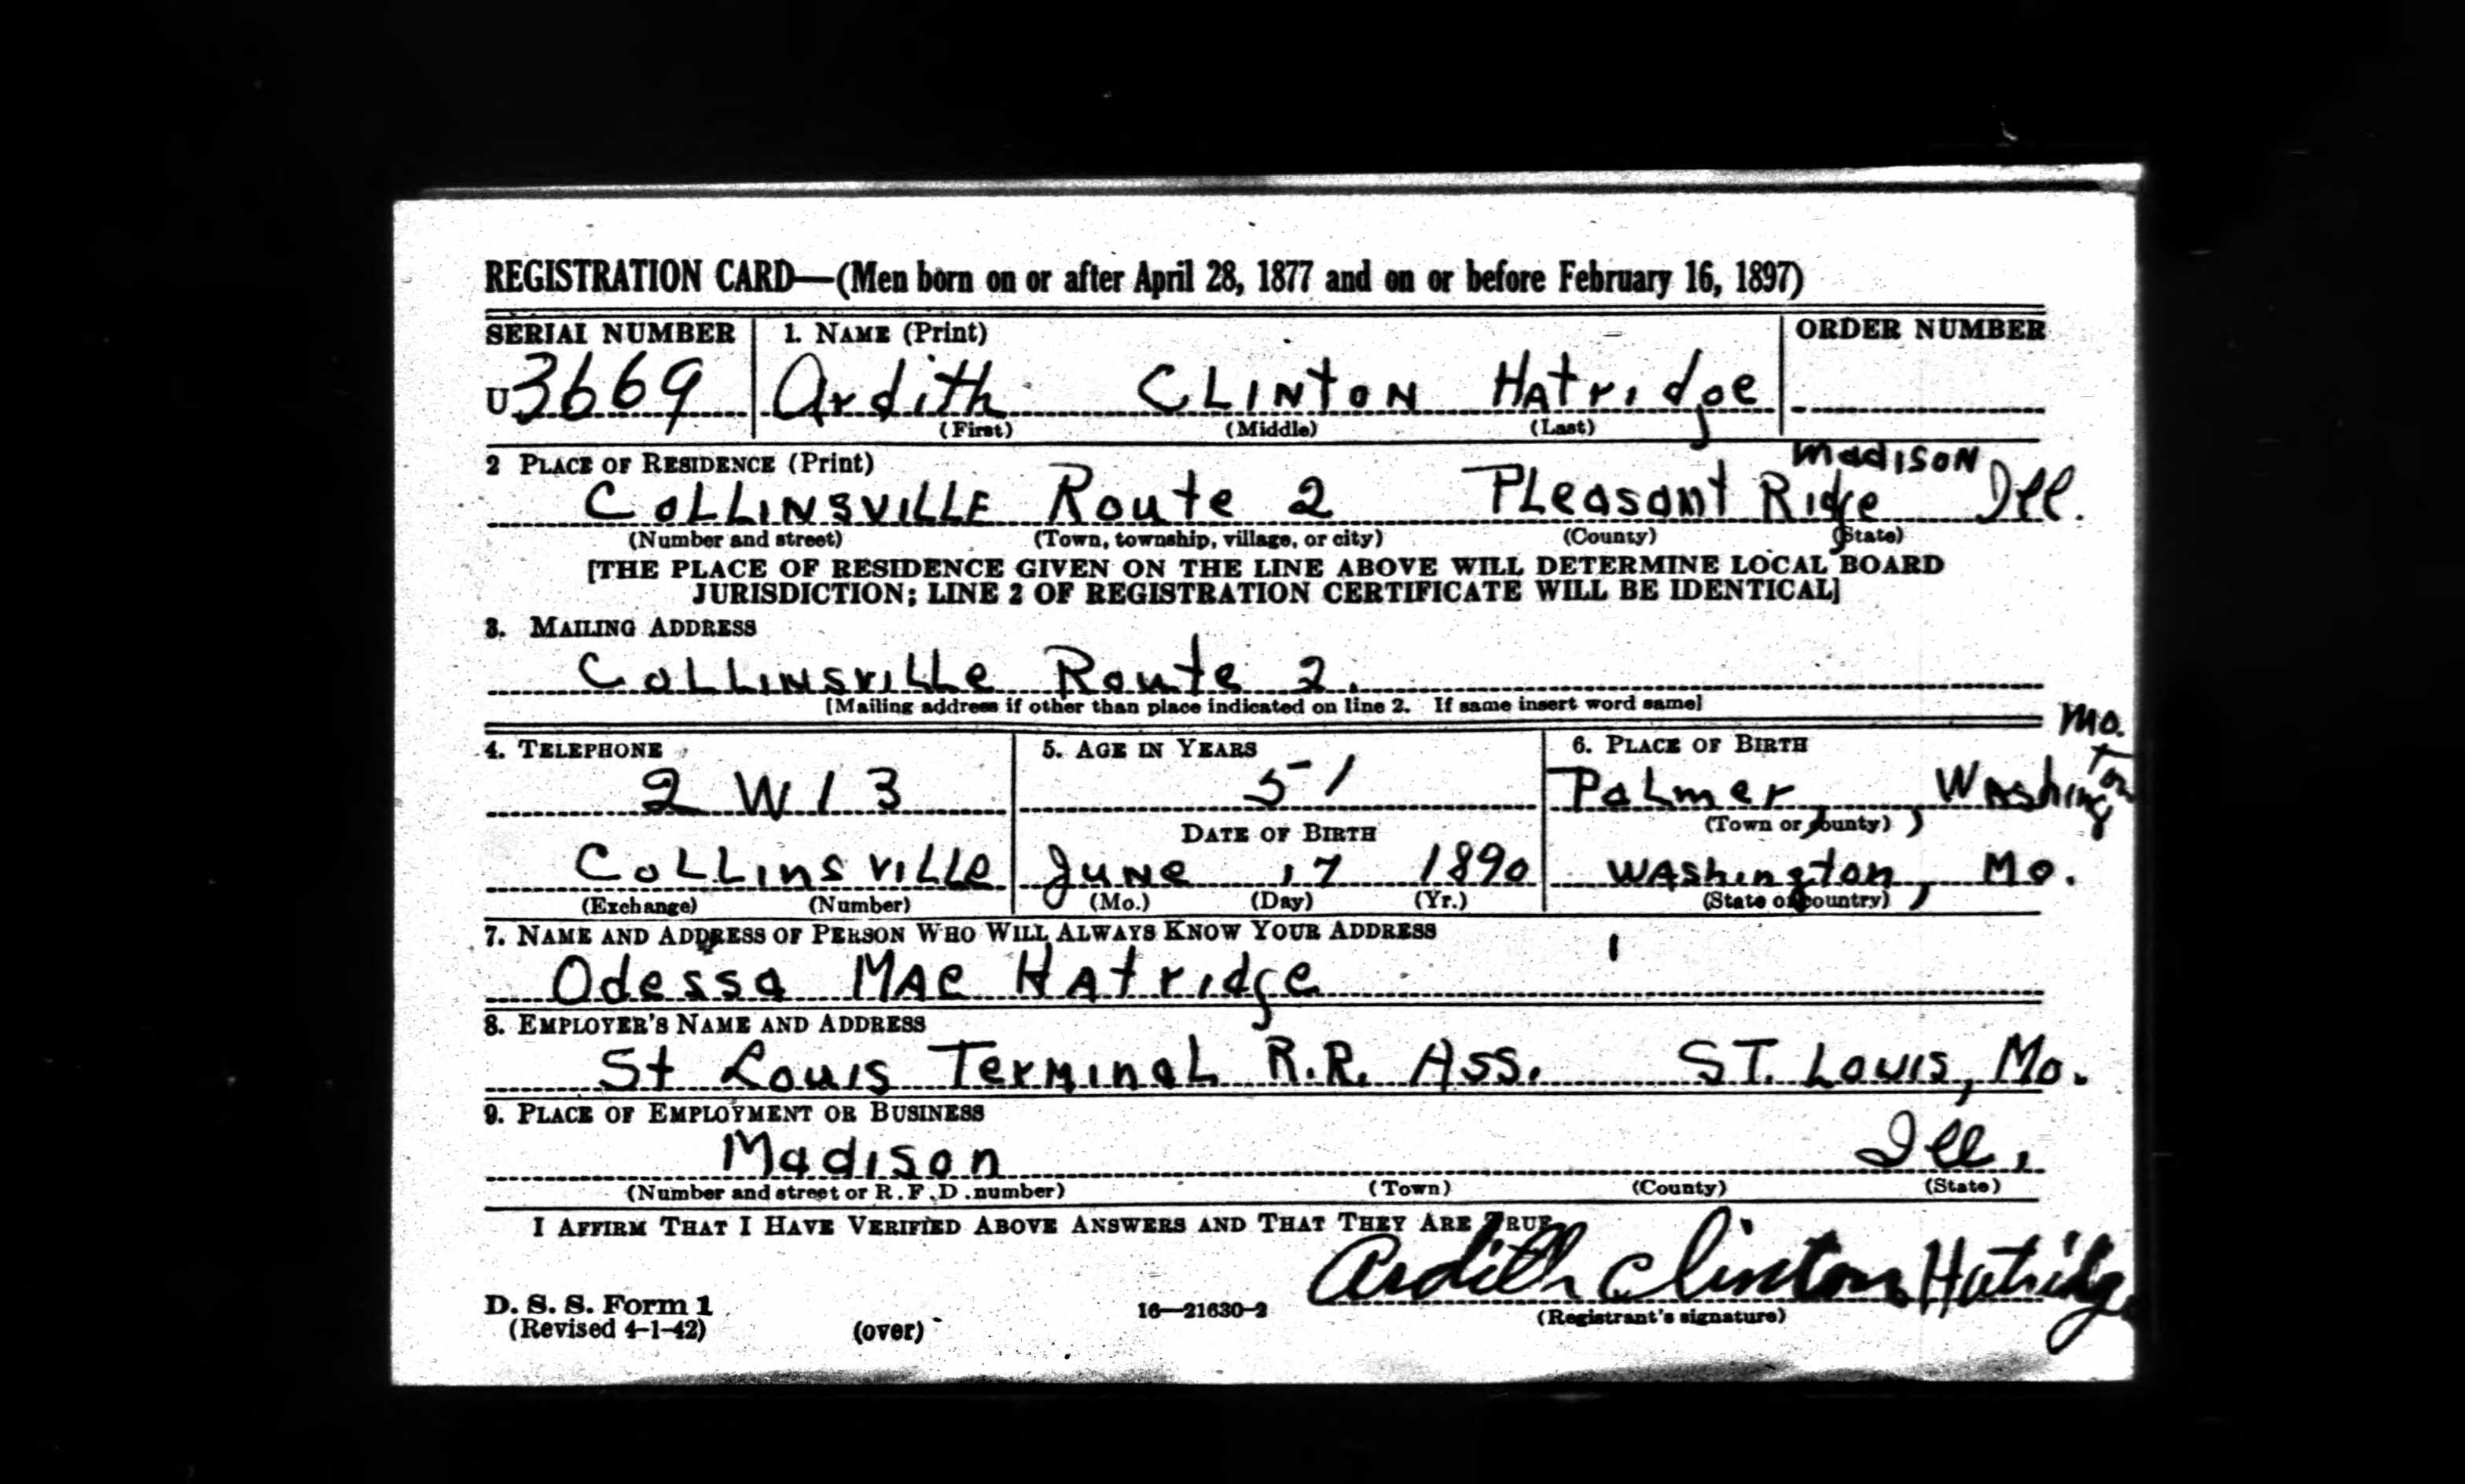 REGISTRATION CARD—(Men born on or after April 28, 1877 and on or before February 16, 1897)
SERIAL NUMBER 1. NAME (Print) ORDER NUMBER
U 3669 Ardith CLINTON Hatridge
(First) (Middle) (Last)
2 PLACE OF RESIDENCE (Print) Madison
COLLINSVILLE Route 2 PLeasant Ridge Ill.
(Number and street) (Town, township, village, or city) (County) (State)
[THE PLACE OF RESIDENCE GIVEN ON THE LINE ABOVE WILL DETERMINE LOCAL BOARD
JURISDICTION; LINE 2 OF REGISTRATION CERTIFICATE WILL BE IDENTICAL]
3. MAILING ADDRESS
CoLLINSviLLe Route 2.
[Mailing address if other than place indicated on line 2. If same insert word same]
4. TELEPHONE 5. AGE IN YEARS 6. PLACE OF BIRTH Mo.
2 W 1 3 51 PaLmer, Washington
DATE OF BIRTH (Town or county)
CoLLinsviLLe June 17 1890 Washington, Mo.
(Exchange) (Number) (Mo.) (Day) (Yr.) (State or country)
7. NAME AND ADDRESS OF PERSON WHO WILL ALWAYS KNOW YOUR ADDRESS
Odessa Mae Hatridge
8. EMPLOYER'S NAME AND ADDRESS
St Louis TerminaL R.R. Ass. ST. Louis, Mo.
9. PLACE OF EMPLOYMENT OR BUSINESS
Madison Ill.
(Number and street or R.F.D. number) (Town) (County) (State)
I AFFIRM THAT I HAVE VERIFIED ABOVE ANSWERS AND THAT THEY ARE TRUE
Ardith Clinton Hatridge
D. S. S. Form 1 16—21630-2 (Registrant's signature)
(Revised 4-1-42) (over)